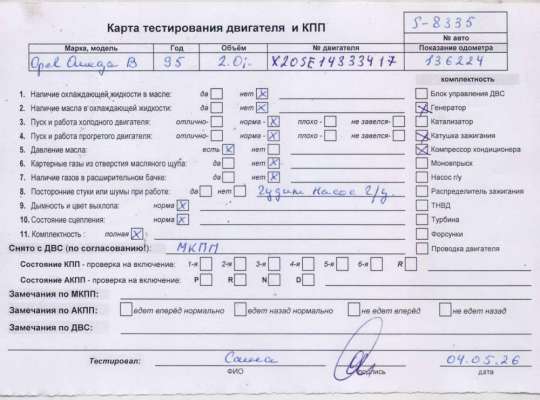 Карта тестирования двигателя и КПП
S-8335
№ авто
Марка, модель Год Объём № двигателя Показание одометра
Opel Omega B 95 2.0i X20SE14833417 136224
комплектность
1. Наличие охлаждающей жидкости в масле: да нет X
Блок управления ДВС
2. Наличие масла в охлаждающей жидкости: да нет X
X Генератор
3. Пуск и работа холодного двигателя: отлично- норма - X плохо - не завелся-
Катализатор
4. Пуск и работа прогретого двигателя: отлично- норма - X плохо - не завелся-
X Катушка зажигания
5. Давление масла: есть X нет
X Компрессор кондиционера
6. Картерные газы из отверстия масляного щупа: да нет
Моновпрыск
7. Наличие газов в расширительном бачке: да нет
Насос г/у
8. Посторонние стуки или шумы при работе: да нет Гудит Насос Г/у.
Распределитель зажигания
9. Дымность и цвет выхлопа: норма X
ТНВД
10. Состояние сцепления: норма X
Турбина
11. Комплектность : полная X
Форсунки
Снято с ДВС (по согласованию!): МКПП
Проводка двигателя
Состояние КПП - проверка на включение: 1-я 2-я 3-я 4-я 5-я 6-я R
Состояние АКПП - проверка на включение: P R N D
Замечания по МКПП:
Замечания по АКПП: едет вперёд нормально едет назад нормально не едет вперёд не едет назад
Замечания по ДВС:
Тестировал: 04.05.26
ФИО подпись дата